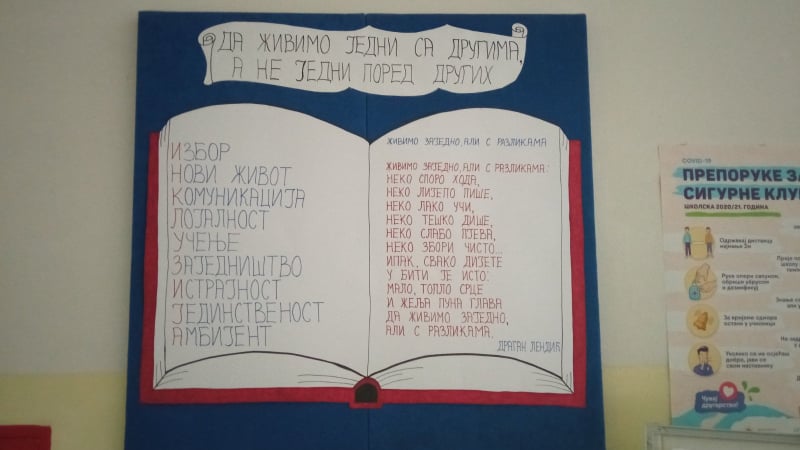 ДА ЖИВИМО ЈЕДНИ СА ДРУГИМА,
А НЕ ЈЕДНИ ПОРЕД ДРУГИХ
ИЗБОР
НОВИ ЖИВОТ
КОМУНИКАЦИЈА
ЛОЈАЛНОСТ
УЧЕЊЕ
ЗАЈЕДНИШТВО
ИСТРАЈНОСТ
ЈЕДИНСТВЕНОСТ
АМБИЈЕНТ
ЖИВИМО ЗАЈЕДНО, АЛИ С РАЗЛИКАМА
ЖИВИМО ЗАЈЕДНО, АЛИ С РАЗЛИКАМА:
НЕКО СПОРО ХОДА,
НЕКО ЛИЈЕПО ПИШЕ,
НЕКО ЛАКО УЧИ,
НЕКО ТЕШКО ДИШЕ,
НЕКО СЛАБО ПЈЕВА,
НЕКО ЗБОРИ ЧИСТО...
ИПАК, СВАКО ДИЈЕТЕ
У БИТИ ЈЕ ИСТО:
МАЛО, ТОПЛО СРЦЕ
И ЖЕЉА ПУНА ГЛАВА
ДА ЖИВИМО ЗАЈЕДНО,
АЛИ С РАЗЛИКАМА.
ДРАГАН ЛЕНДИЋ
COVID-19
ПРЕПОРУКЕ ЗА
СИГУРНЕ КЛУ
ШКОЛСКА 2020/21. ГОДИНА
Одржавај дистанцу
најмање 2м
Руке опери сапуном,
обриши убрусом
и дезинфикуј
За вријеме одмора
остани у учионици
Уколико се не осјећаш
добро, јави се
свом наставнику
Чувај
другарство!